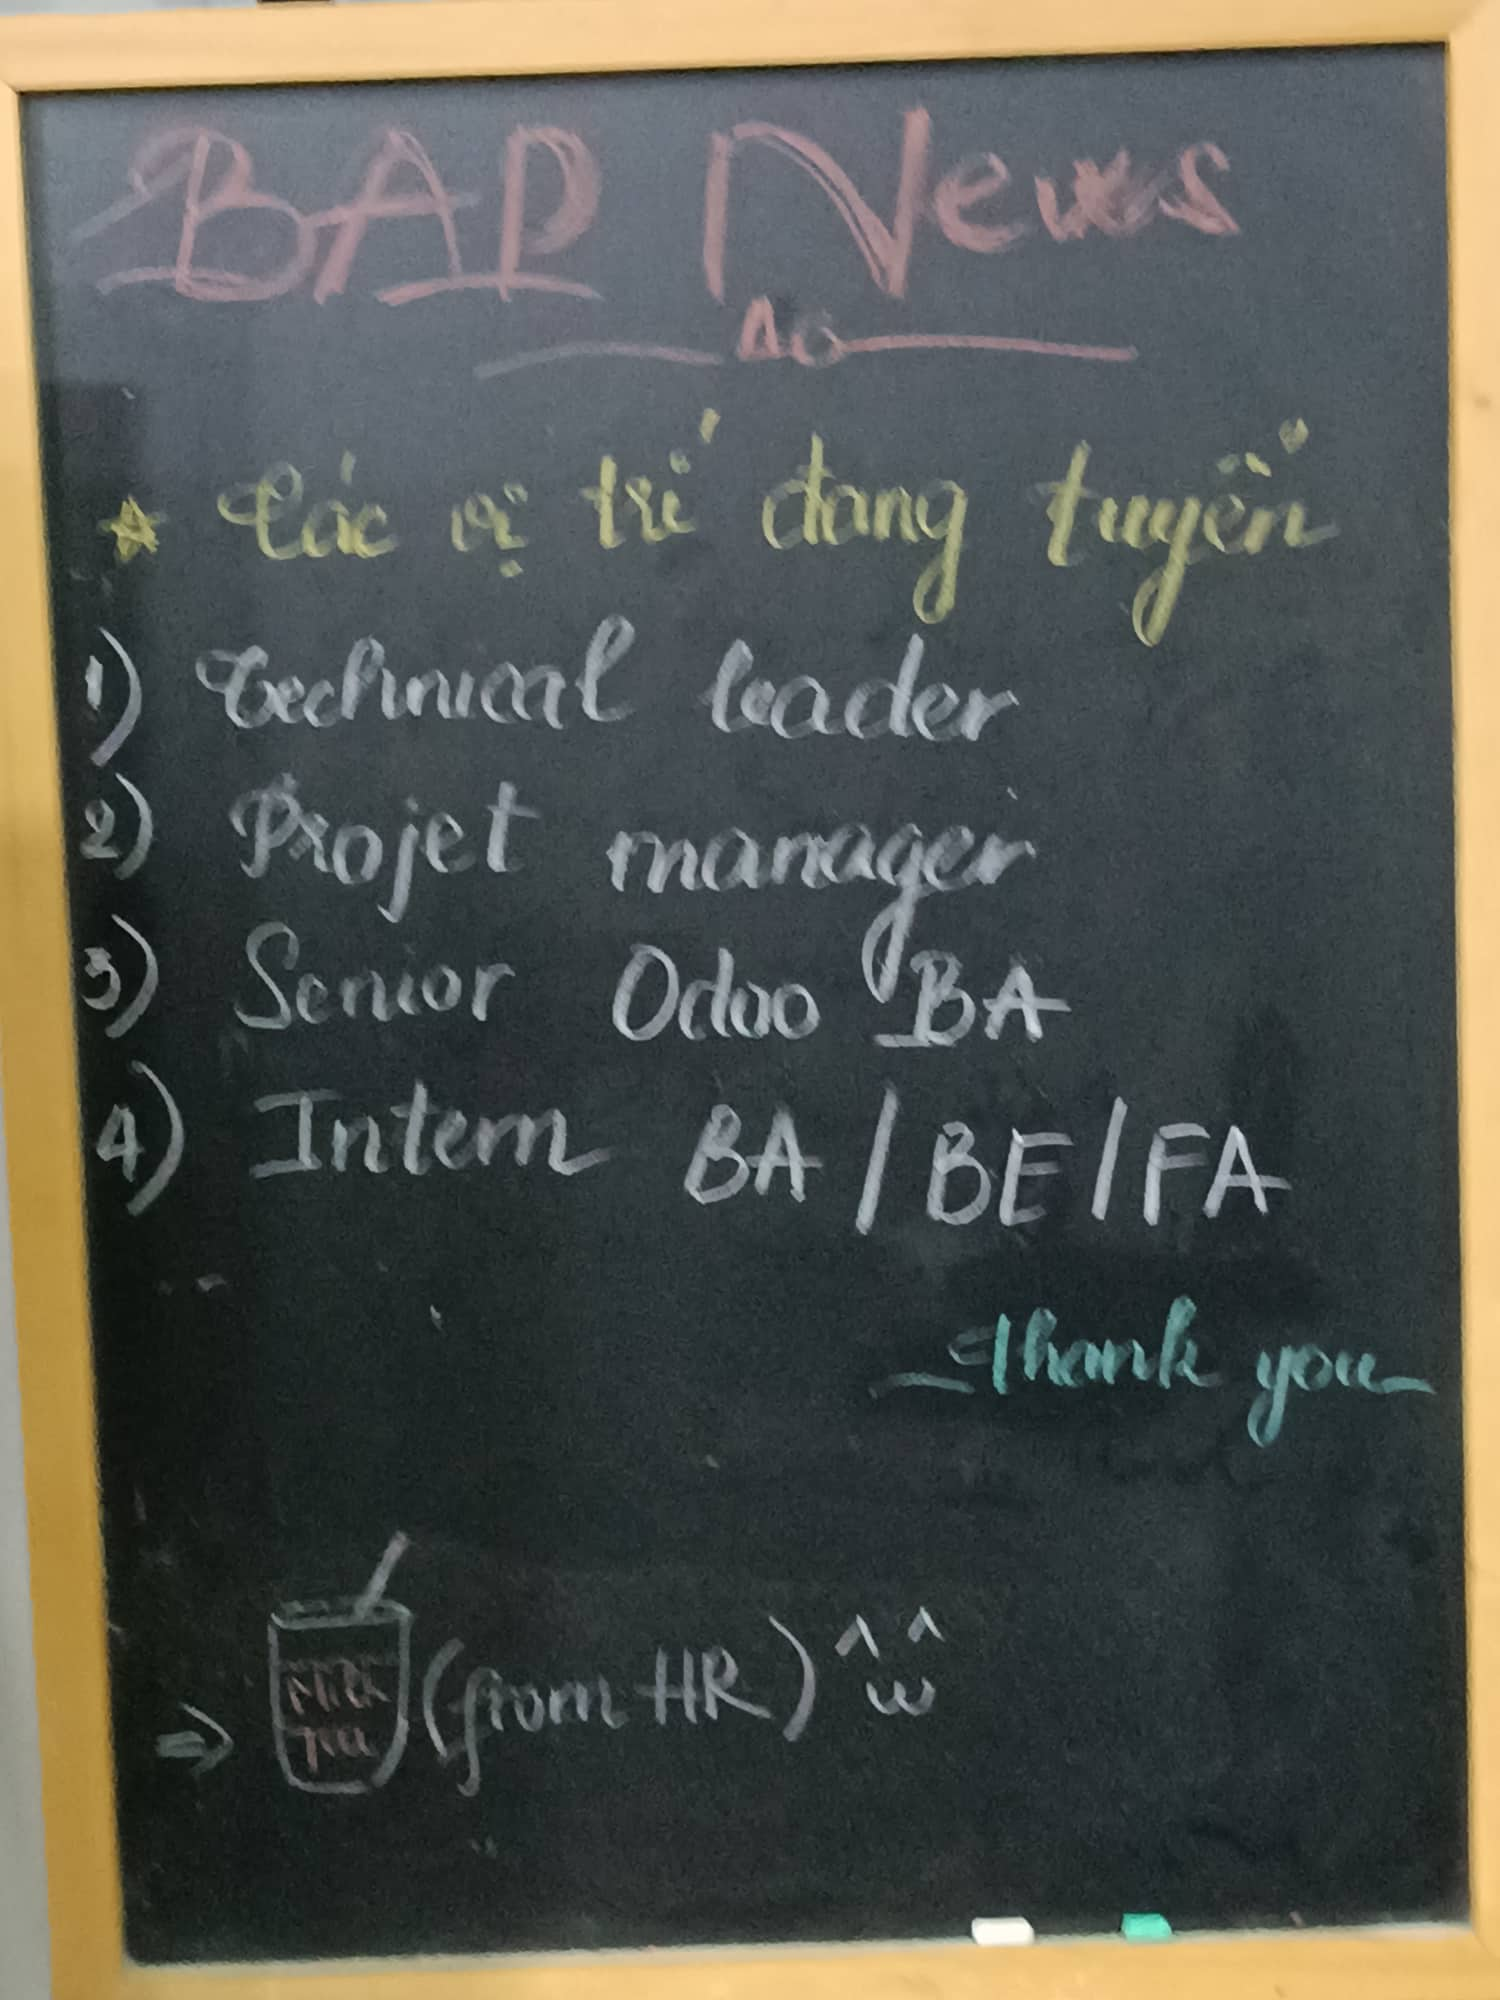 BAP News
☆ Các vị trí đang tuyển
1) Technical leader
2) Projet manager
3) Senior Odoo BA
4) Intern BA / BE / FA
Thank you
⇒ Milk Tea (from HR) ^ω^